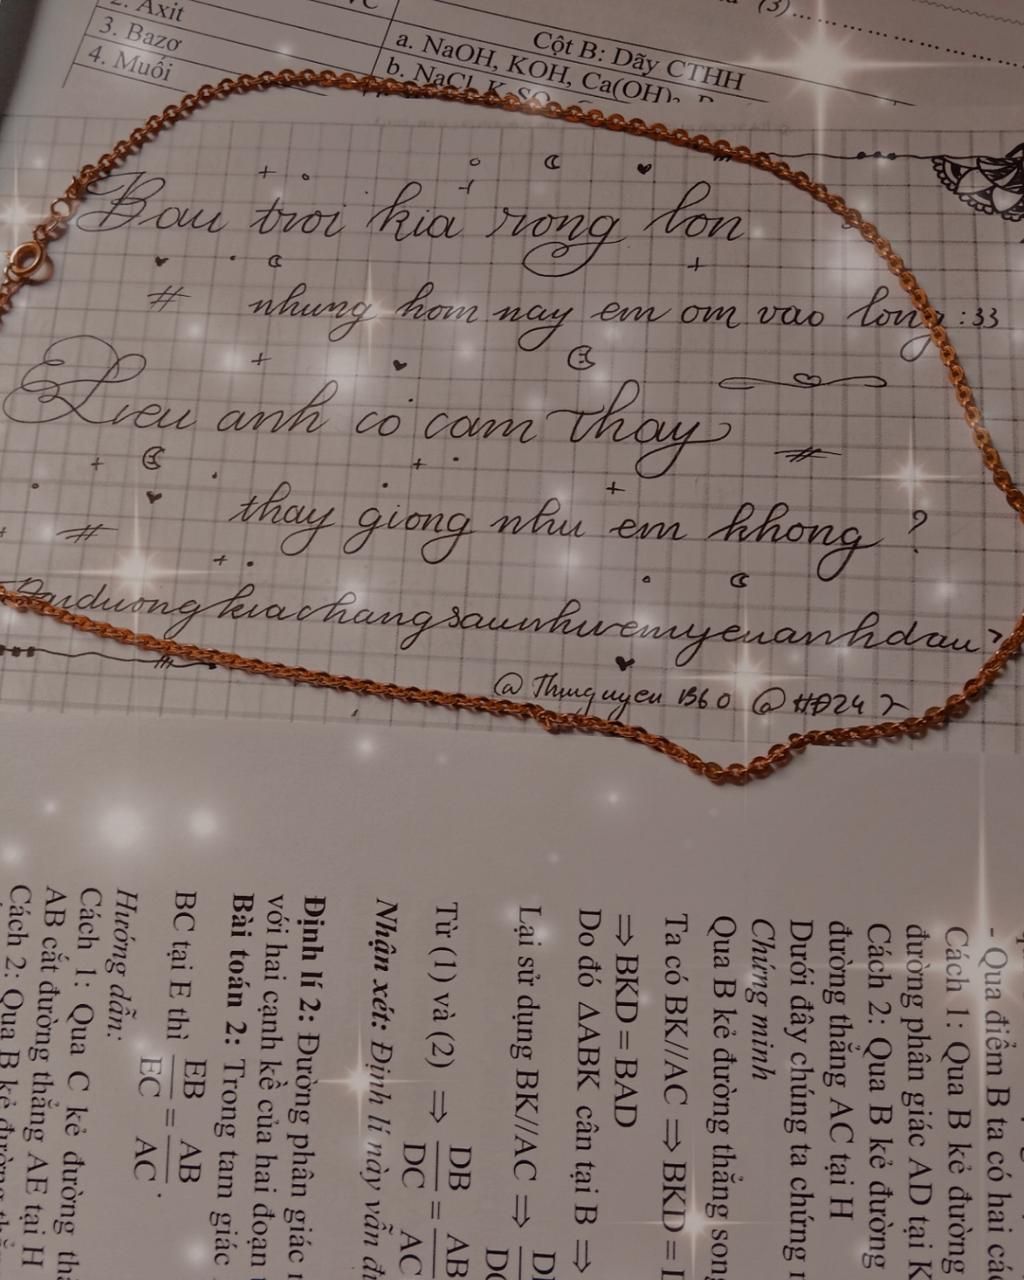 2. Axit
3. Bazơ
4. Muối
Cột B: Dãy CTHH
a. NaOH, KOH, Ca(OH)₂
b. NaCl, K SO
(3)
Bau troi kia rong lon
nhung hom nay em om vao long :33
Lieu anh co cam thay
thay giong nhu em khong ?
Daiduongkiachangsaunhuemyeuanhdau?
@Thunguyen1360 @HĐ242
- Qua điểm B ta có hai
Cách 1: Qua B kẻ đường
đường phân giác AD tại K
Cách 2: Qua B kẻ đường
đường thẳng AC tại H
Dưới đây chúng ta chứng
Chứng minh
Qua B kẻ đường thẳng song
Ta có BK//AC ⇒ BKD =
⇒ BKD = BAD
Do đó ΔABK cân tại B ⇒
Lại sử dụng BK//AC ⇒
Từ (1) và (2) ⇒ DB/DC = AB/AC
Nhận xét: Định lí này vẫn
Định lí 2: Đường phân giác
với hai cạnh kề của hai đoạn
Bài toán 2: Trong tam giác
BC tại E thì EB/EC = AB/AC.
Hướng dẫn:
Cách 1: Qua C kẻ đường
AB cắt đường thẳng AE tại H
Cách 2: Qua B kẻ đường